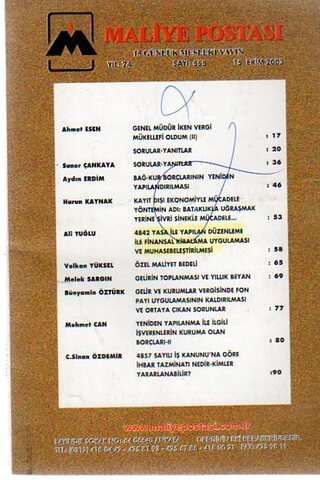 MALİYE POSTASI
15 GÜNLÜK MESLEKİ YAYIN
YIL: 24 SAYI: 555 15 EKİM 2003
Ahmet ESEN GENEL MÜDÜR İKEN VERGİ
MÜKELLEFİ OLDUM (II) : 17
SORULAR-YANITLAR : 20
Suner ÇANKAYA SORULAR-YANITLAR : 36
Aydın ERDİM BAĞ-KUR BORÇLARININ YENİDEN
YAPILANDIRILMASI : 46
Harun KAYNAK KAYIT DIŞI EKONOMİYLE MÜCADELE
YÖNTEMİN ADI: BATAKLIKLA UĞRAŞMAK
YERİNE ŞİVRİ SİNEKLE MÜCADELE... : 53
Ali TUĞLU 4842 YASA İLE YAPILAN DÜZENLEME
İLE FİNANSAL KİRALAMA UYGULAMASI
VE MUHASEBELEŞTİRİLMESİ : 58
Volkan YÜKSEL ÖZEL MALİYET BEDELİ : 65
Melek SARGIN GELİRİN TOPLANMASI VE YILLIK BEYAN : 69
Bünyamin ÖZTÜRK GELİR VE KURUMLAR VERGİSİNDE FON
PAYI UYGULAMASININ KALDIRILMASI
VE ORTAYA ÇIKAN SORUNLAR : 77
Mehmet CAN YENİDEN YAPILANMA İLE İLGİLİ
İŞVERENLERİN KURUMA OLAN
BORÇLARI-II : 80
C.Sinan ÖZDEMİR 4857 SAYILI İŞ KANUNU'NA GÖRE
İHBAR TAZMİNATI NEDİR-KİMLER
YARARLANABİLİR? :90
www.maliyepostasi.com.tr